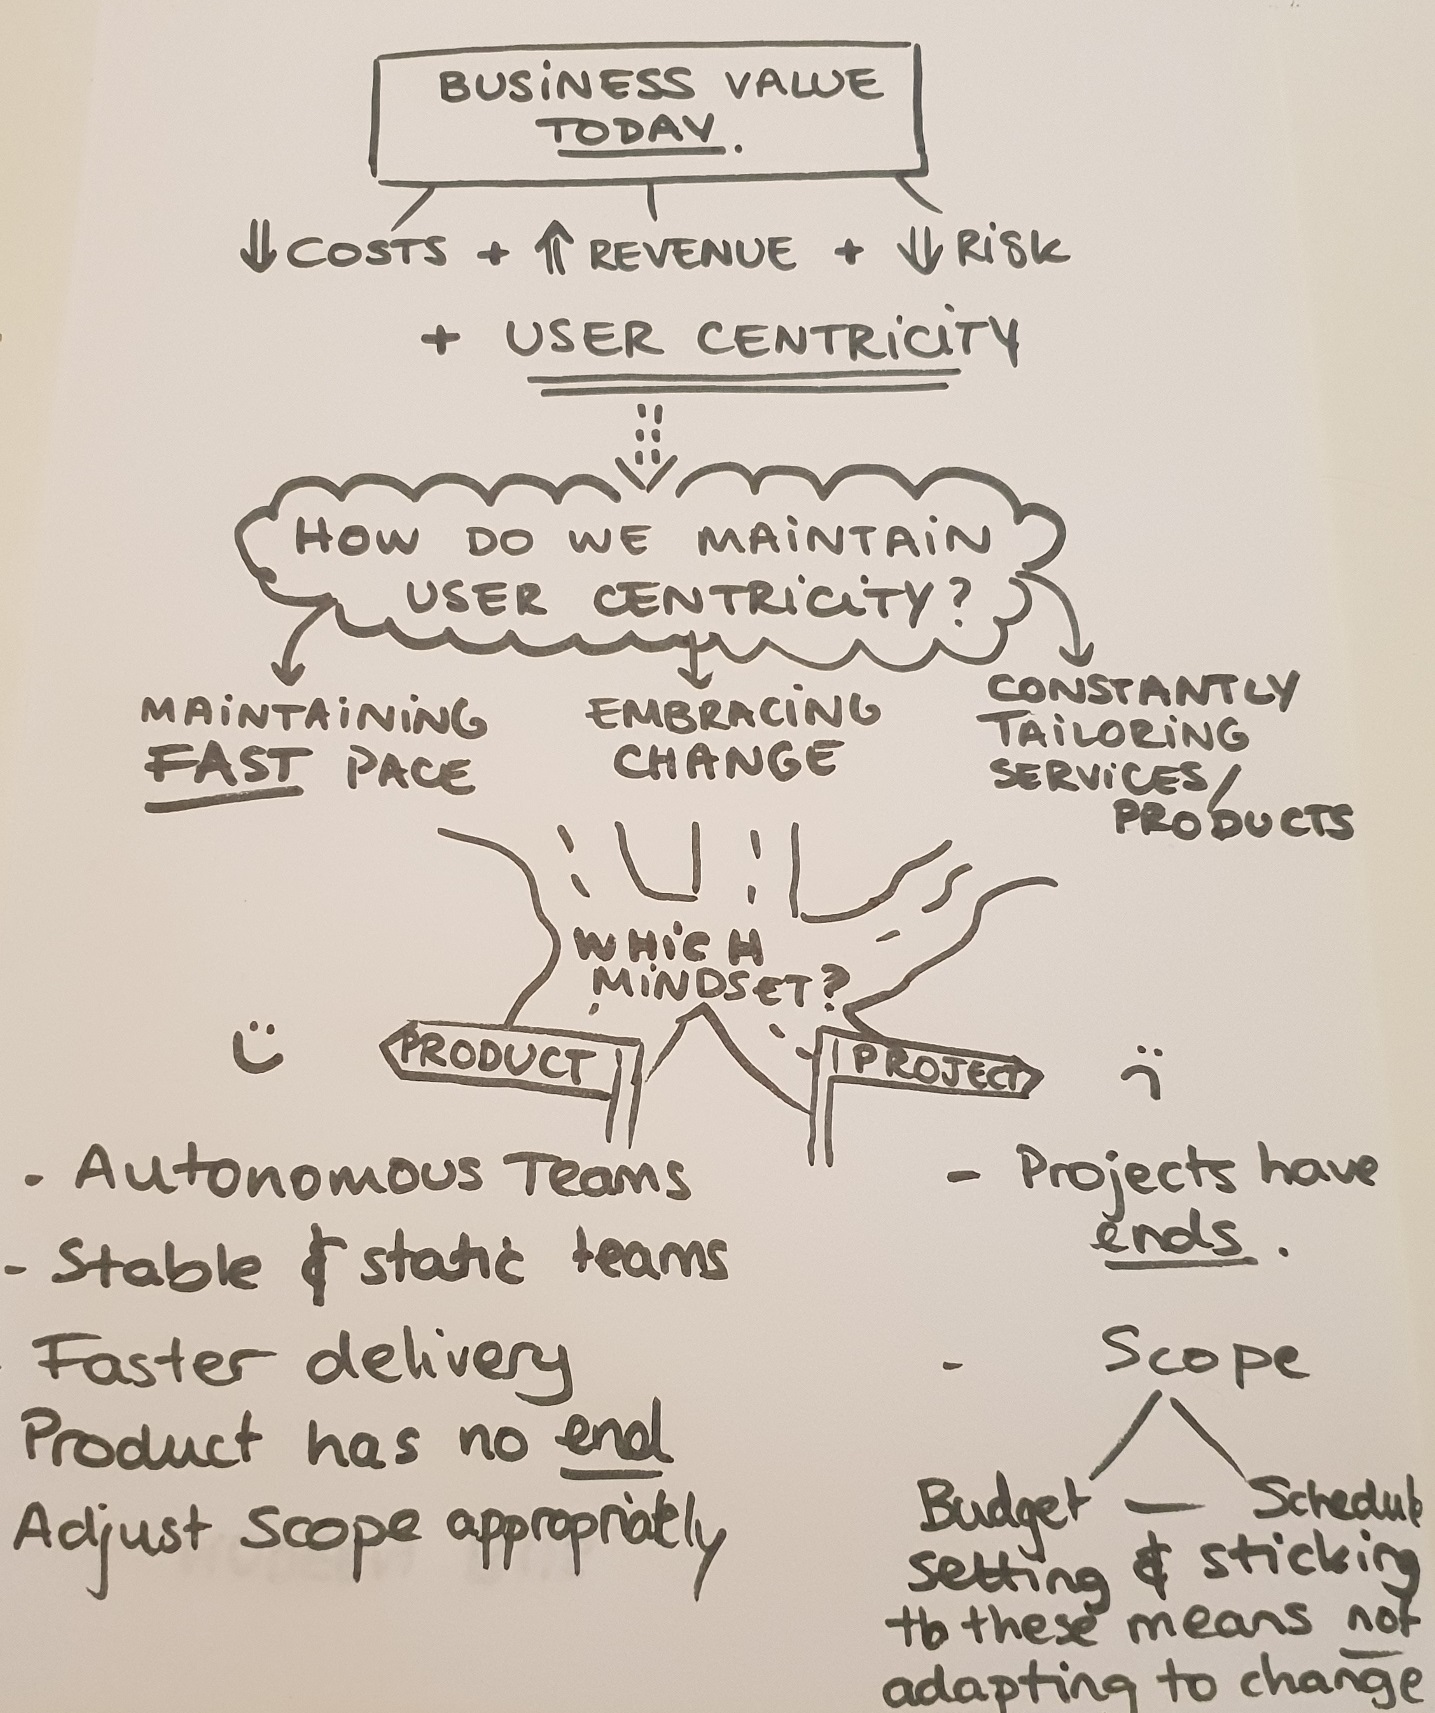 BUSINESS VALUE
TODAY.
⇓ COSTS + ⇑ REVENUE + ⇓ RISK
+ USER CENTRICITY
HOW DO WE MAINTAIN
USER CENTRICITY?
MAINTAINING
FAST PACE
EMBRACING
CHANGE
CONSTANTLY
TAILORING
SERVICES/
PRODUCTS
WHICH
MINDSET?
PRODUCT
PROJECT
- Autonomous Teams
- Stable & static teams
- Faster delivery
Product has no end
Adjust scope appropriately
- Projects have
ends.
- Scope
Budget — Schedule
setting & sticking
to these means not
adapting to change